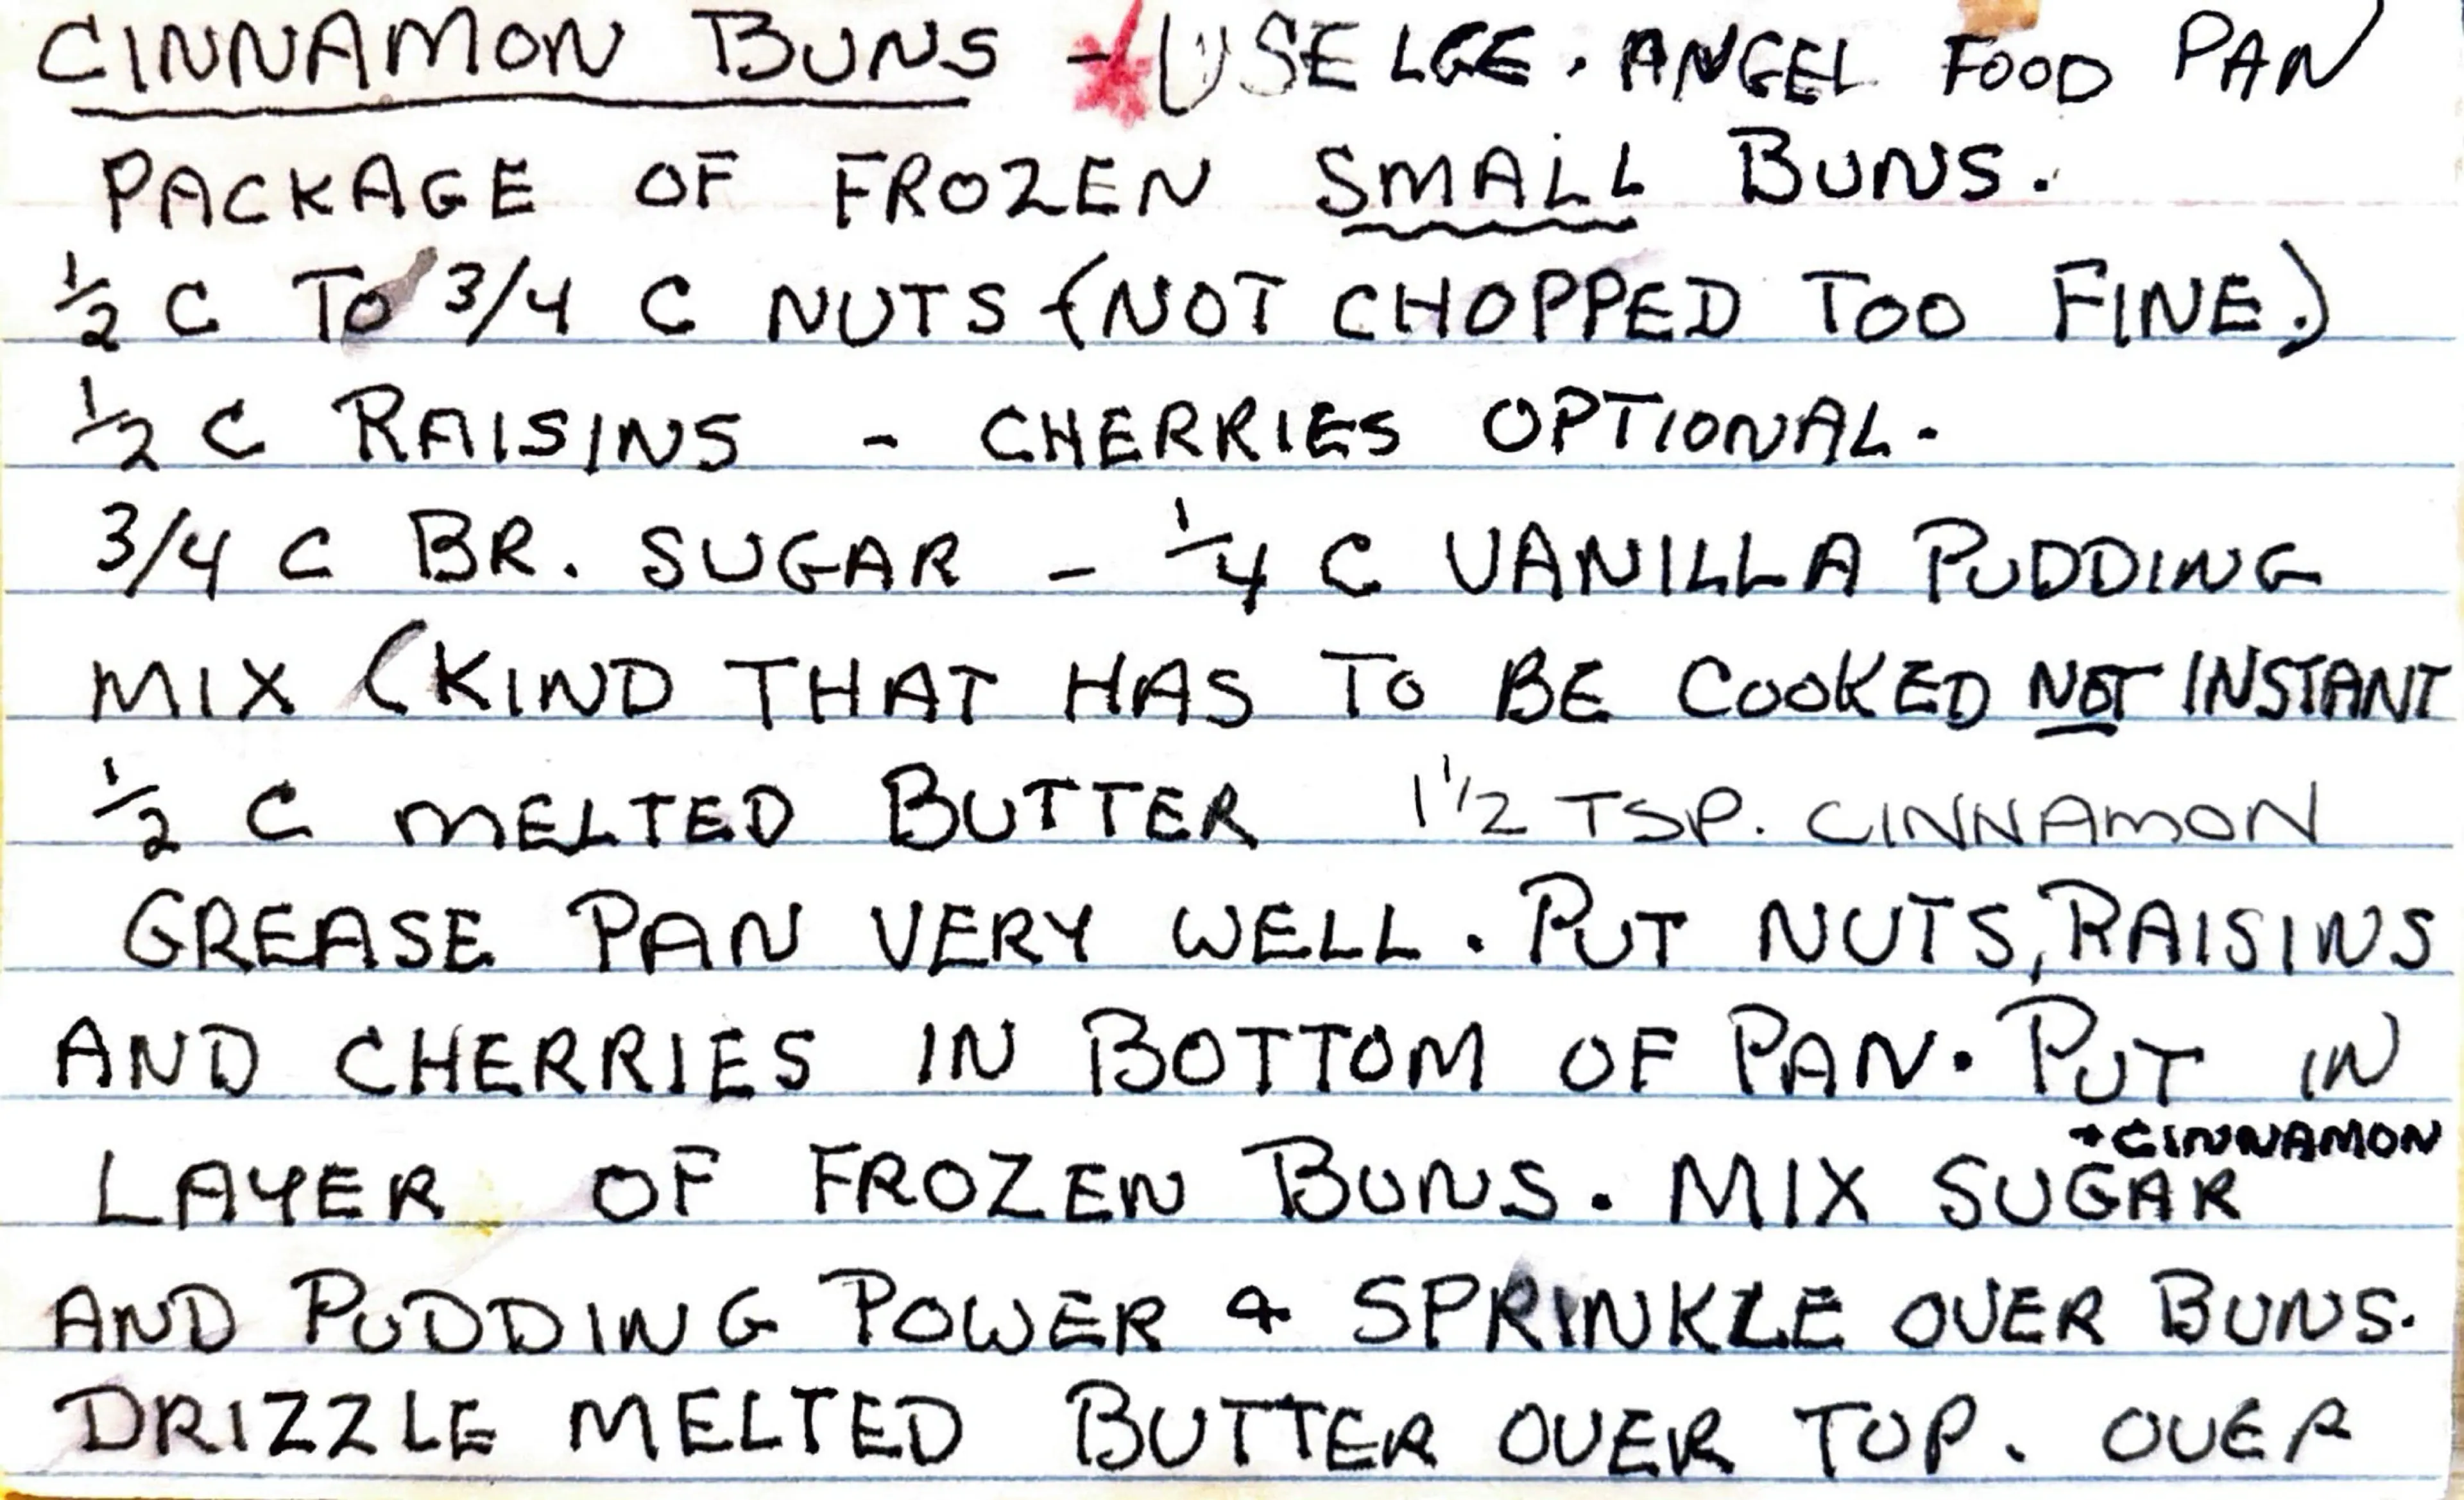 CINNAMON BUNS - * USE LGE. ANGEL FOOD PAN
PACKAGE OF FROZEN SMALL BUNS.
1/2 C TO 3/4 C NUTS (NOT CHOPPED TOO FINE.)
1/2 C RAISINS - CHERRIES OPTIONAL.
3/4 C BR. SUGAR - 1/4 C VANILLA PUDDING
MIX (KIND THAT HAS TO BE COOKED NOT INSTANT
1/2 C MELTED BUTTER 1 1/2 TSP. CINNAMON
GREASE PAN VERY WELL. PUT NUTS, RAISINS
AND CHERRIES IN BOTTOM OF PAN. PUT IN
+ CINNAMON
LAYER OF FROZEN BUNS. MIX SUGAR
AND PUDDING POWER & SPRINKLE OVER BUNS.
DRIZZLE MELTED BUTTER OVER TOP. OVER